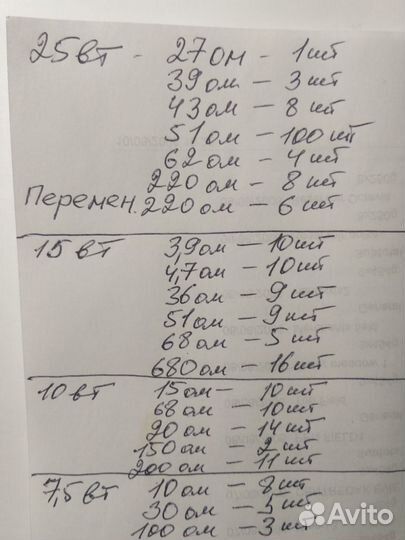 25 вт - 27 ом - 1 шт
39 ом - 3 шт
43 ом - 8 шт
51 ом - 100 шт
62 ом - 4 шт
220 ом - 8 шт
Перемен. 220 ом - 6 шт
15 вт 3,9 ом - 10 шт
4,7 ом - 10 шт
36 ом - 9 шт
51 ом - 9 шт
68 ом - 5 шт
680 ом - 16 шт
10 вт 15 ом - 10 шт
68 ом - 10 шт
90 ом - 14 шт
150 ом - 2 шт
200 ом - 11 шт
7,5 вт 10 ом - 8 шт
30 ом - 5 шт
100 ом - 3 шт
Avito